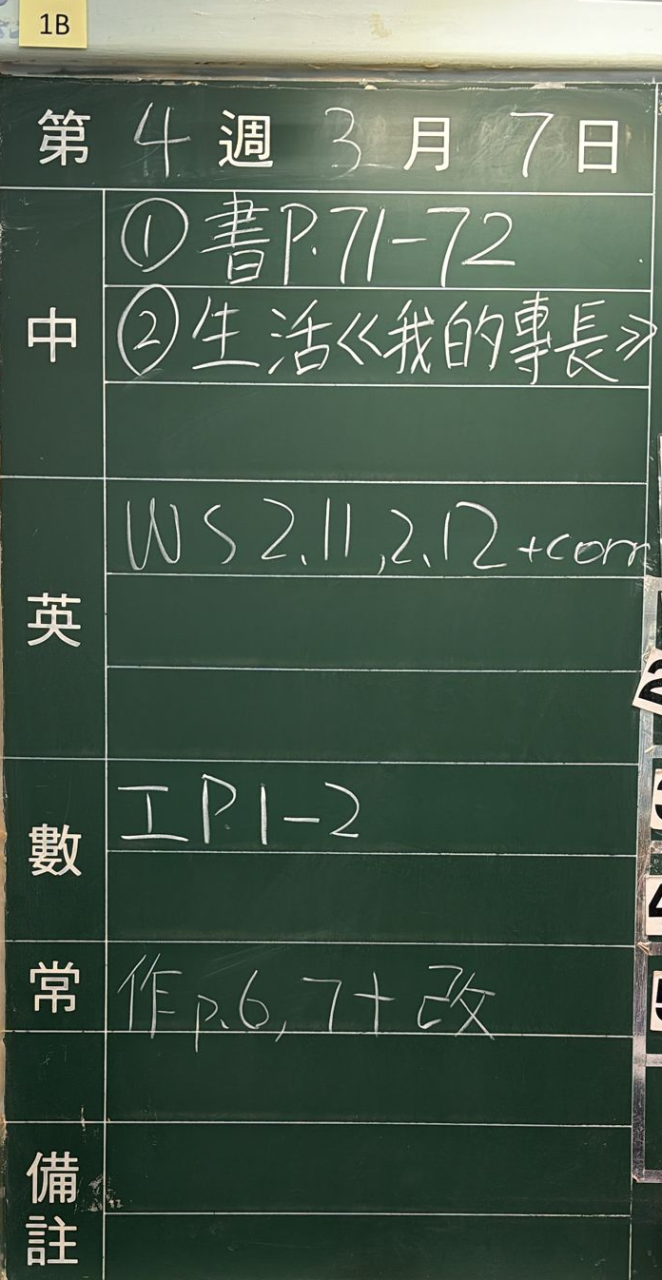 1B
第 4 週 3 月 7 日
中
①書P.71-72
②生活《我的專長》
英
WS 2.11,2.12 +corr
數
工P.1-2
常
作p.6,7+改
備註